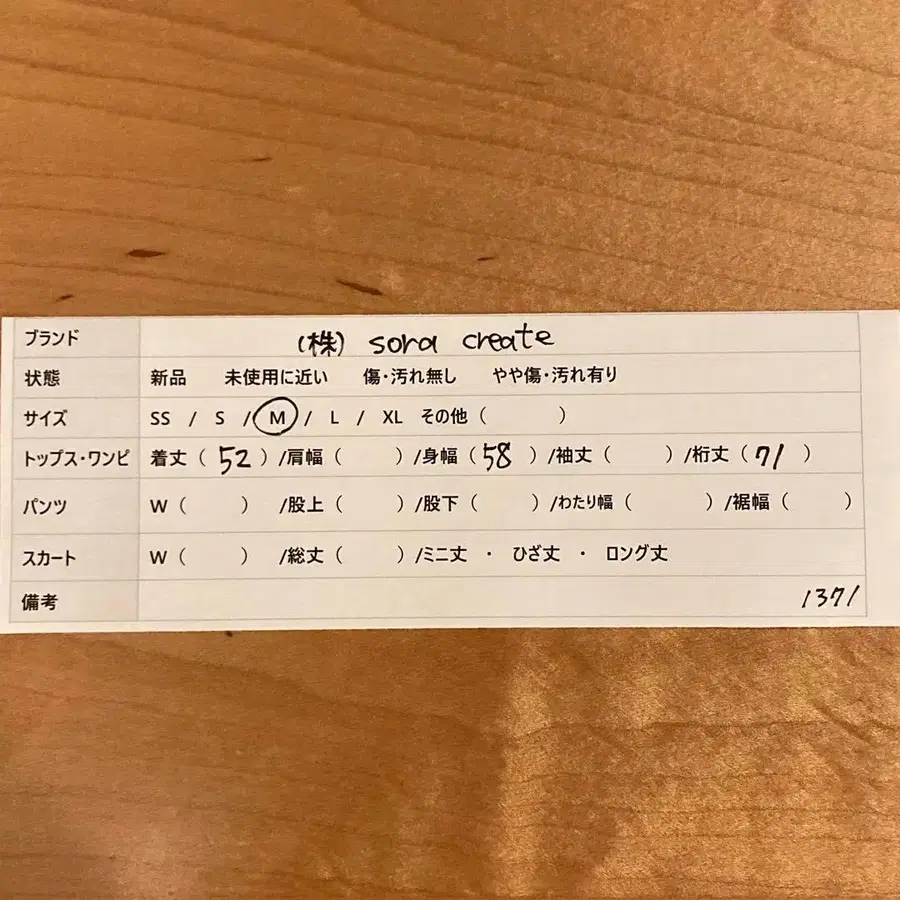 ブランド (株) sora create
状態 新品 未使用に近い 傷・汚れ無し やや傷・汚れ有り
サイズ SS / S / M / L / XL その他 ( )
トップス・ワンピ 着丈 ( 52 ) /肩幅 ( ) /身幅 ( 58 ) /袖丈 ( ) /裄丈 ( 71 )
パンツ W ( ) /股上 ( ) /股下 ( ) /わたり幅 ( ) /裾幅 ( )
スカート W ( ) /総丈 ( ) /ミニ丈 ・ ひざ丈 ・ ロング丈
備考 1371